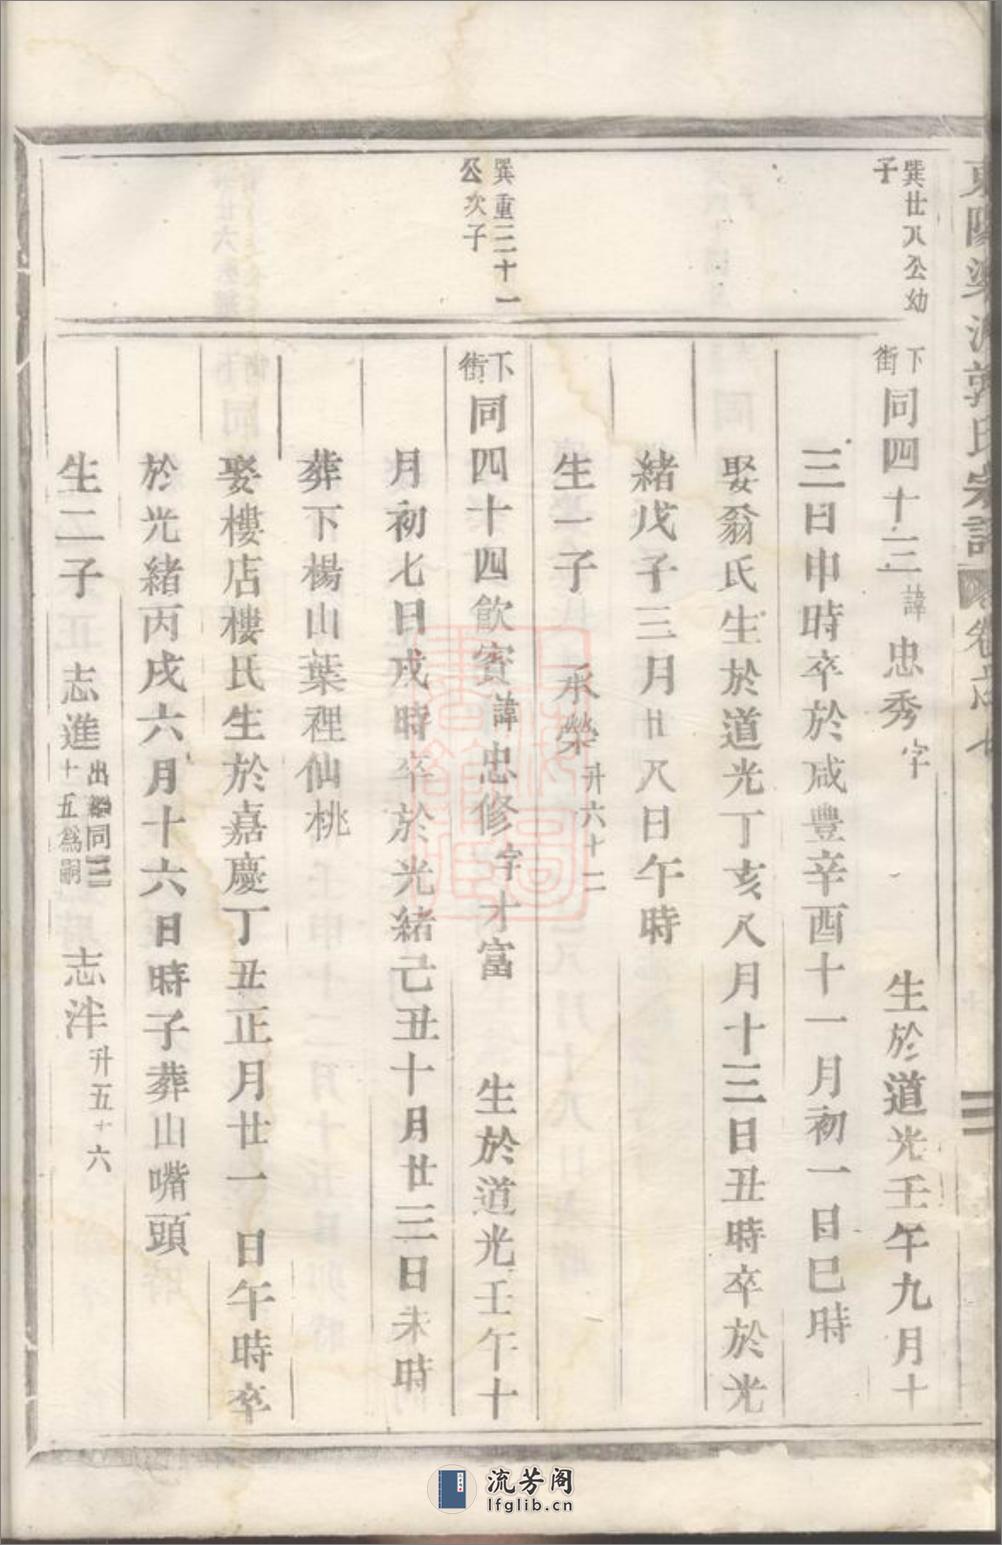 郭氏宗譜
巽廿八公幼
子
下街同四十三諱忠秀字 生於道光壬午九月十
三日申時卒於咸豐辛酉十一月初一日巳時
娶翁氏生於道光丁亥八月十三日丑時卒於光
緒戊子三月廿八日午時
生一子 承榮升六十二
巽重三十一
公次子
下街同四十四飲賓諱忠修字才富 生於道光壬午十
月初七日戌時卒於光緒己丑十月廿三日未時
葬下楊山葉裡仙桃
娶樓店樓氏生於嘉慶丁丑正月廿一日午時卒
於光緒丙戌六月十六日時子葬山嘴頭
生二子 志進出繼同三十五爲嗣 志洋升五十六
流芳阁
lfglib.cn